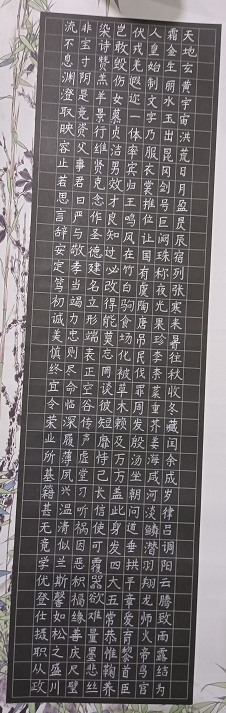 天地玄黄宇宙洪荒日月盈昃辰宿列张寒来暑往秋收冬藏闰余成岁律吕调阳云腾致雨露结为
霜金生丽水玉出昆冈剑号巨阙珠称夜光果珍李柰菜重芥姜海咸河淡鳞潜羽翔龙师火帝鸟官
人皇始制文字乃服衣裳推位让国有虞陶唐吊民伐罪周发殷汤坐朝问道垂拱平章爱育黎首臣
伏戎羌遐迩一体率宾归王鸣凤在竹白驹食场化被草木赖及万方盖此身发四大五常恭惟鞠养
岂敢毁伤女慕贞洁男效才良知过必改得能莫忘罔谈彼短靡恃己长信使可覆器欲难量墨悲丝
染诗赞羔羊景行维贤克念作圣德建名立形端表正空谷传声虚堂习听祸因恶积福缘善庆尺璧
非宝寸阴是竞资父事君曰严与敬孝当竭力忠则尽命临深履薄夙兴温清似兰斯馨如松之盛川
流不息渊澄取映容止若思言辞安定笃初诚美慎终宜令荣业所基籍甚无竟学优登仕摄职从政